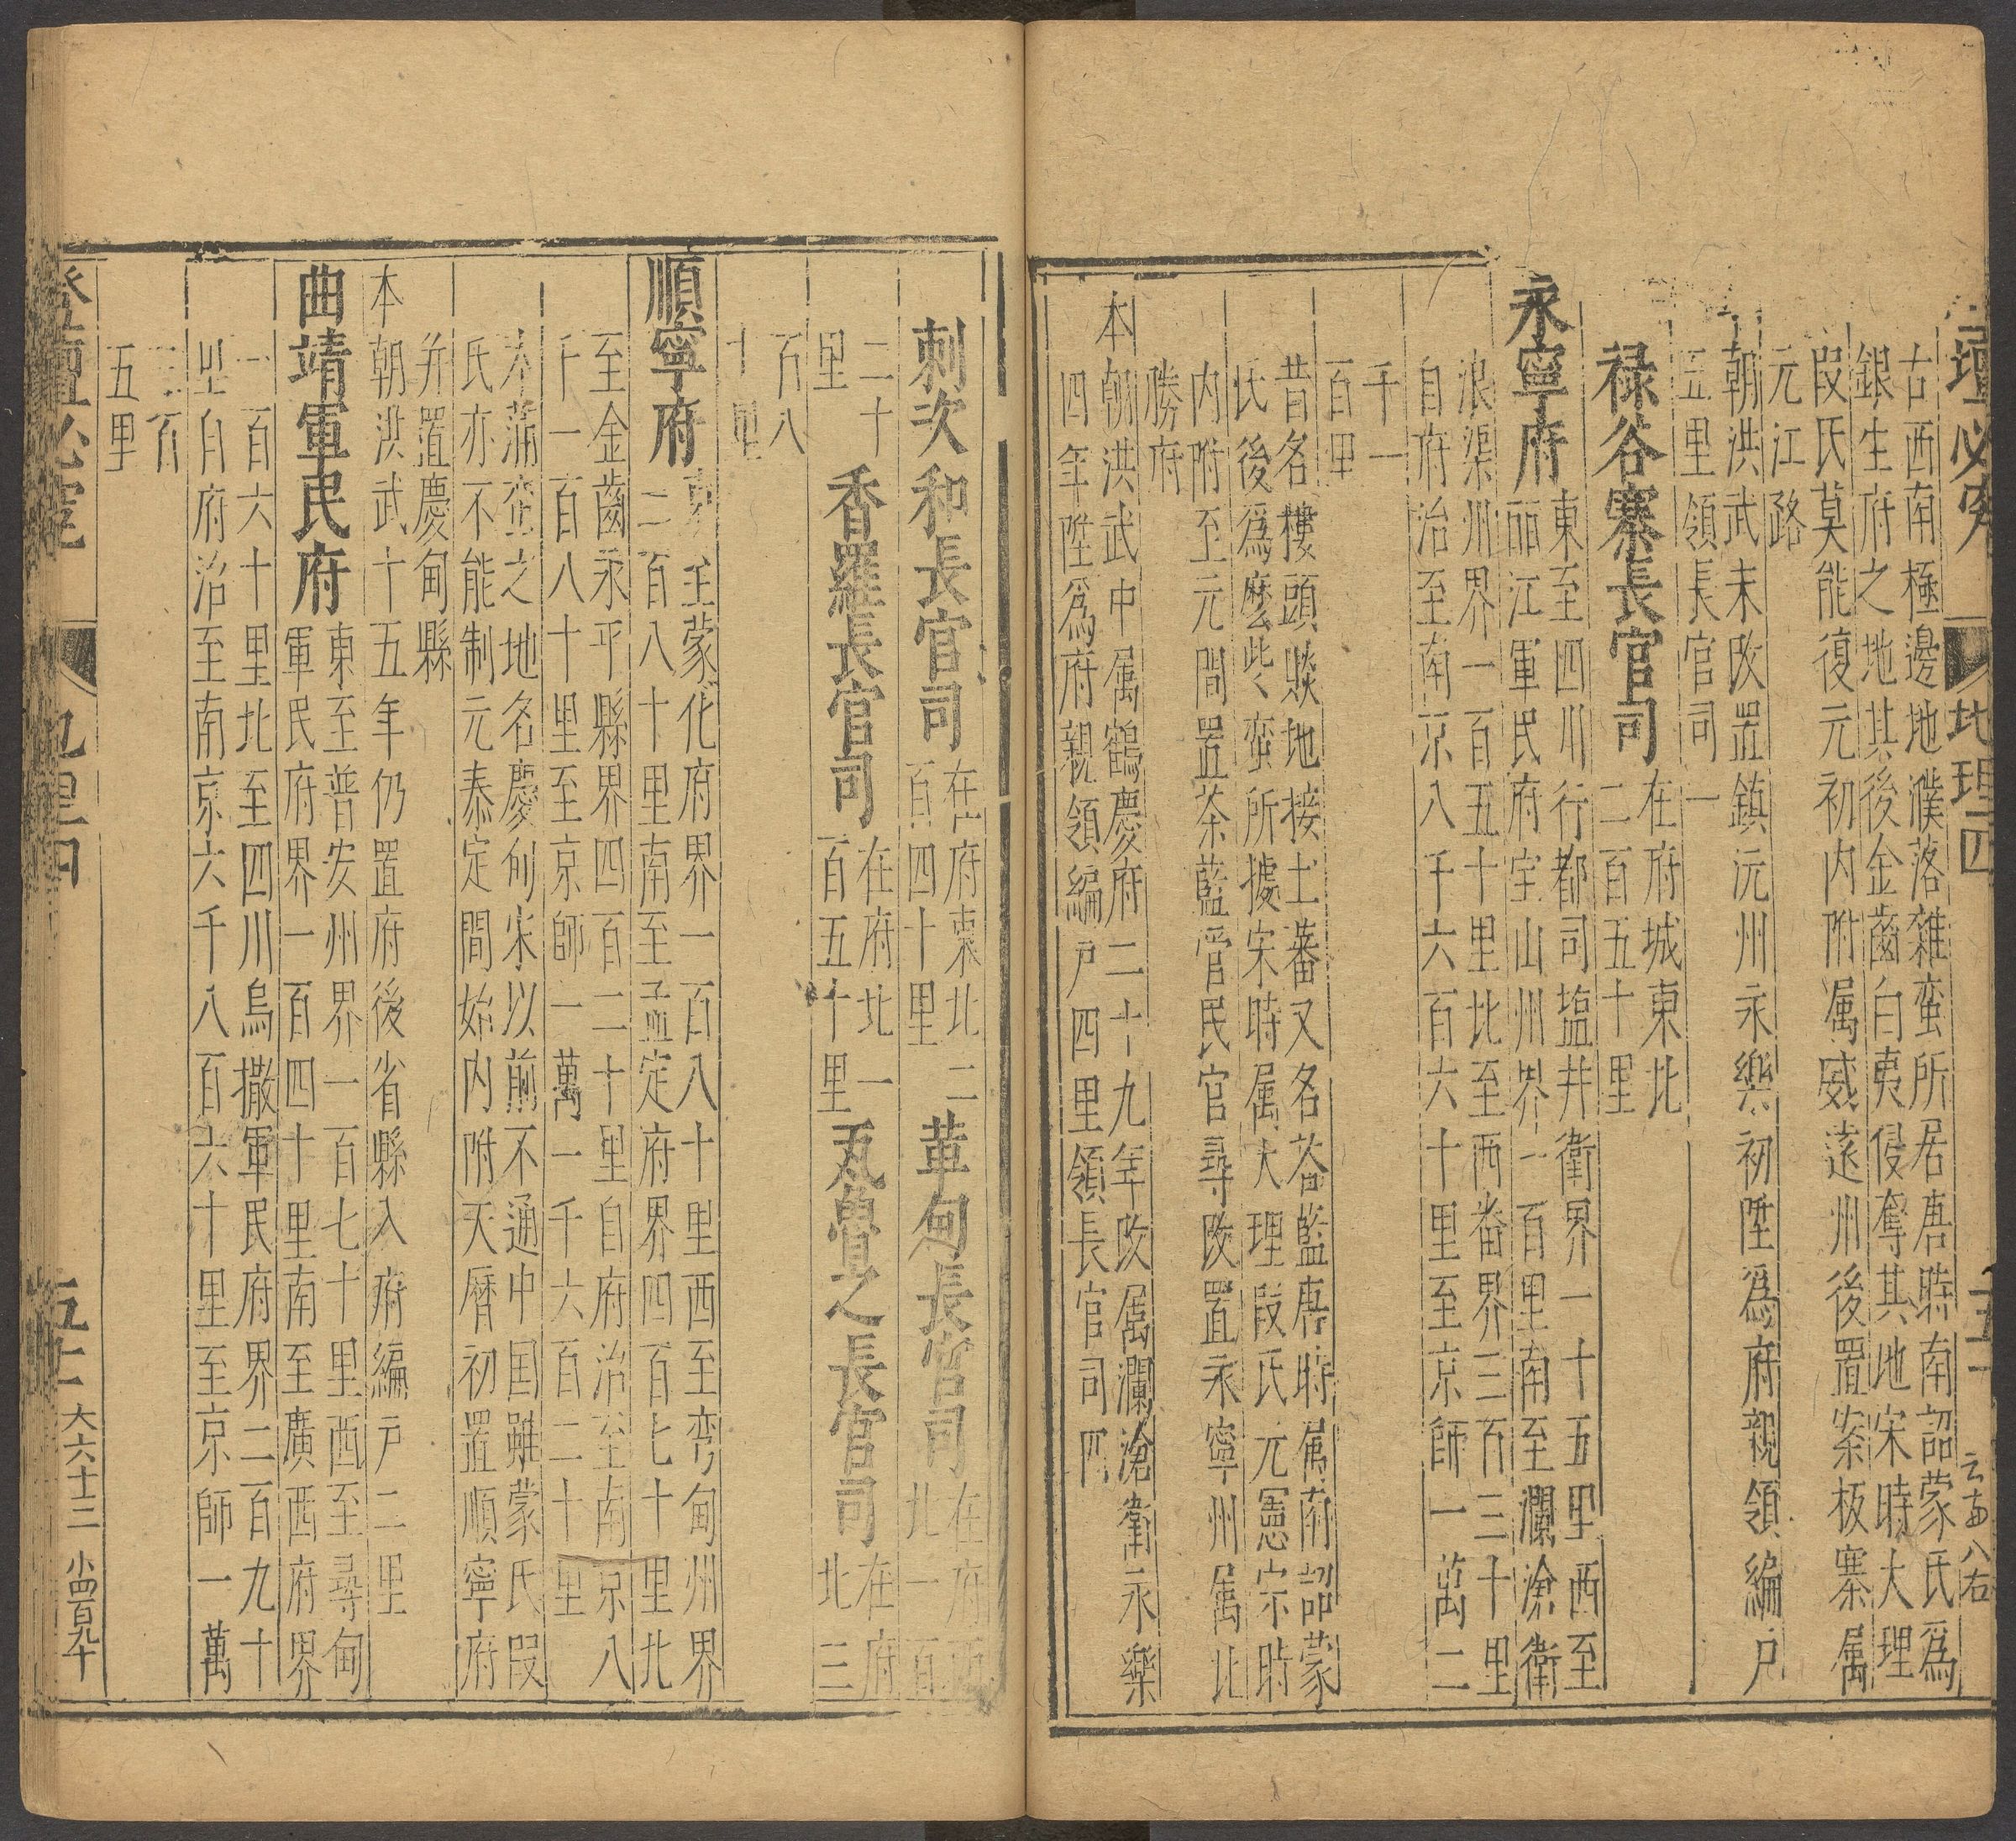 壇必究
地理四
五十一
云南八右
古西南極邊地濮落雜蛮所居唐時南詔蒙氏爲
銀生府之地其後金齒白夷侵奪其地宋時大理
段氏莫能復元初內附属威遠州後置案板寨属
元江路
朝洪武末改置鎮沅州永樂初陞爲府親領編户
五里領長官司一
禄谷寨長官司
在府城東北
二百五十里
永寧府
東至四川行都司塩井衛界一十五里西至
丽江軍民府宝山州界一百里南至瀾滄衛
浪渠州界一百五十里北至西畨界三百三十里
自府治至南京八千六百六十里至京師一萬二
千一
百里
昔名樓頭賧地接土蕃又名荅藍唐時属南詔蒙
氏後爲麽些蛮所據宋時属大理段氏元憲宗時
内附至元間置茶藍管民官尋改置永寧州属北
勝府
本朝洪武中属鶴慶府二十九年改属瀾滄衛永樂
四年陞爲府親領編户四里領長官司四
刺次和長官司
在府東北二
百四十里
革甸長官司
在府西
北一百
二十
里
香羅長官司
在府北一
百五十里
瓦魯之長官司
在府
北三
百八
十里
順寧府
東至蒙化府界一百八十里西至弯甸州界
二百八十里南至孟定府界四百七十里北
至金齒永平縣界四百二十里自府治至南京八
千一百八十里至京師一萬一千六百二十里
本蒲蛮之地名慶甸宋以前不通中国雖蒙氏段
氏亦不能制元泰定間始内附天曆初置順寧府
并置慶甸縣
本朝洪武十五年仍置府後省縣入府編户二里
曲靖軍民府
東至普安州界一百七十里西至尋甸
軍民府界一百四十里南至廣西府界
一百六十里北至四川烏撒軍民府界二百九十
里自府治至南京六千八百六十里至京師一萬
三百
五里
登壇必究
地理四
五十二
大六十二
小四百九十